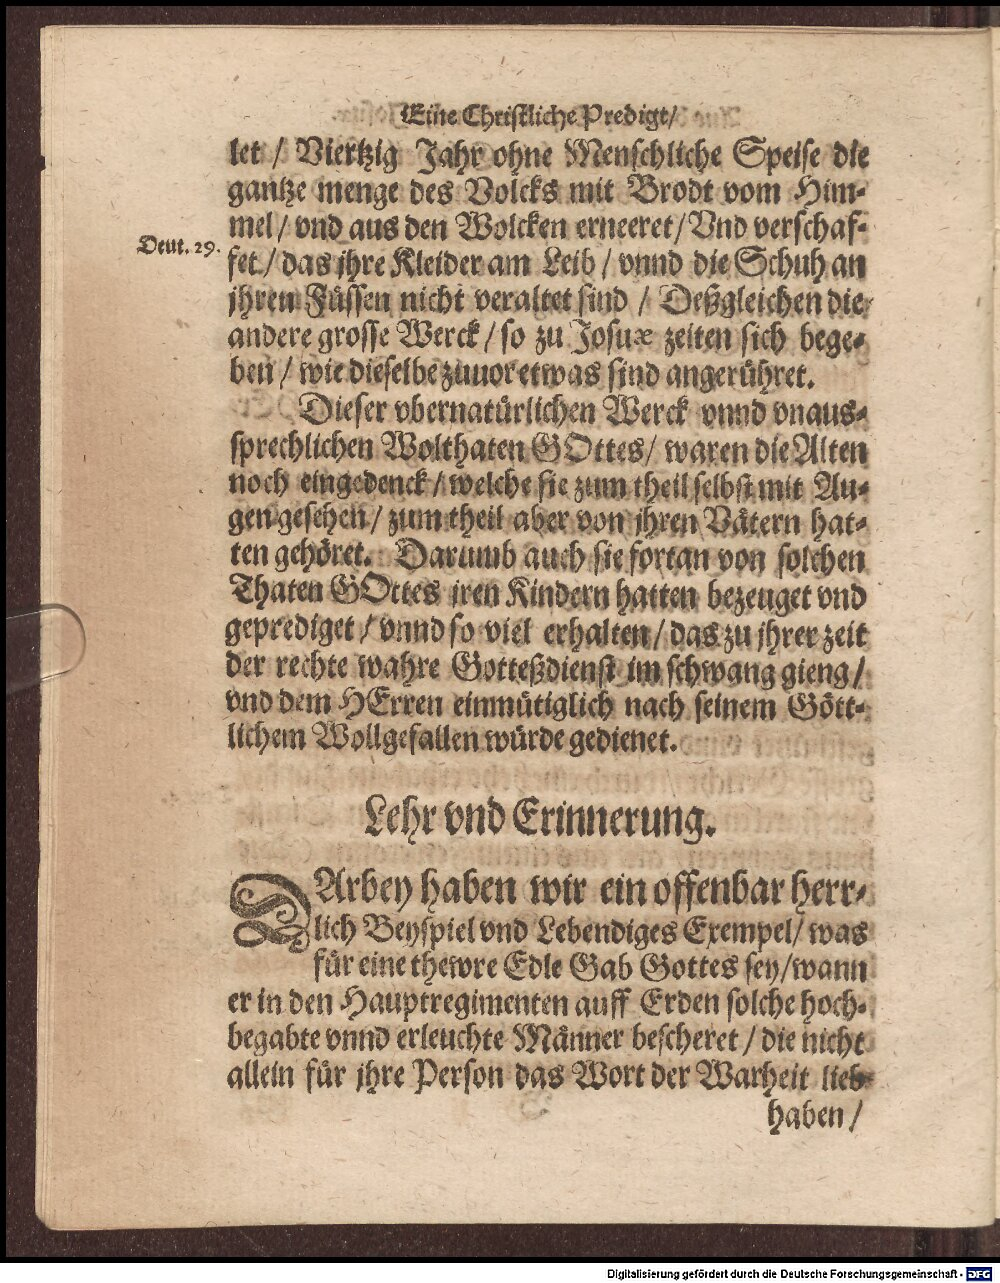 Eine Christliche Predigt/
let / Viertzig Jahr ohne Menschliche Speise die
gantze menge des Volcks mit Brodt vom Him-
mel / vnd aus den Wolcken erneeret / Vnd verschaf-
Deut. 29.
fet / das jhre Kleider am Leib / vnnd die Schuh an
jhren Füssen nicht veraltet sind / Deßgleichen die
andere grosse Werck / so zu Josuæ zeiten sich bege-
ben / wie dieselbe zuuor etwas sind angerühret.
Dieser vbernatürlichen Werck vnnd vnaus-
sprechlichen Wolthaten GOttes / waren die Alten
noch eingedenck / welche sie zum theil selbst mit Au-
gen gesehen / zum theil aber von jhren Vätern hat-
ten gehöret. Darumb auch sie fortan von solchen
Thaten GOttes jren Kindern hatten bezeuget vnd
geprediget / vnnd so viel erhalten / das zu jhrer zeit
der rechte wahre Gotteßdienst im schwang gieng /
vnd dem HErren einmütiglich nach seinem Gött-
lichem Wollgefallen würde gedienet.
Lehr vnd Erinnerung.
DArbey haben wir ein offenbar herr-
lich Beyspiel vnd Lebendiges Exempel / was
für eine thewre Edle Gab Gottes sey / wann
er in den Hauptregimenten auff Erden solche hoch-
begabte vnnd erleuchte Männer bescheret / die nicht
allein für jhre Person das Wort der Warheit lieb
haben /
Digitalisierung gefördert durch die Deutsche Forschungsgemeinschaft - DFG